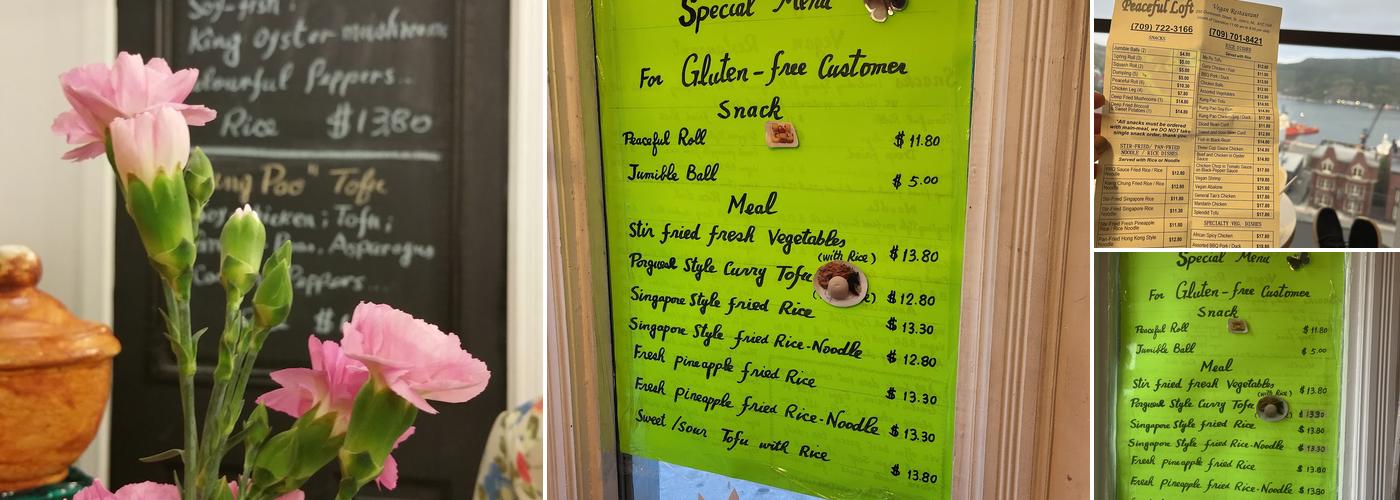 Soy-fish;
King oyster mushrooms
Colourful Peppers...
Rice $13.80
"Kung Pao" Tofu
Soy chicken; Tofu;
Asparagus
Peppers...
Special Menu
For Gluten-free Customer
Snack
Peaceful Roll $11.80
Jumible Ball $5.00
Meal
Stir fried fresh Vegetables (with Rice) $13.80
Porguese Style Curry Tofu $12.80
Singapore Style fried Rice $13.30
Singapore Style fried Rice-Noodle $12.80
Fresh pineapple fried Rice $13.30
Fresh pineapple fried Rice-Noodle $13.30
Sweet/sour Tofu with Rice $13.80
Peaceful Loft Vegan Restaurant
(709) 722-3166 (709) 701-8421
SNACKS
Jumble Balls (2) $4.80
Spring Roll (3) $5.00
Squash Roll (2) $5.00
Dumpling (5) $5.00
Peaceful Roll (6) $10.30
Chicken Leg (4) $7.80
Deep Fried Mushrooms (1) $14.80
Deep Fried Broccoli & Sweet Potatoes (1) $14.80
*All snacks must be ordered
with main-meal, we DO NOT take
single snack order, thank you.
STIR-FRIED/ PAN-FRIED
NOODLE / RICE DISHES
Served with Rice or Noodle
BBQ Sauce Fried Rice / Rice Noodle $12.80
Kung Chung Fried Rice / Rice Noodle $12.80
Stir-Fried Singapore Rice $11.80
Stir-Fried Singapore Rice Noodle $11.30
Stir-Fried Fresh Pineapple Rice / Rice Noodle $11.80
Pan-Fried Hong Kong Style $12.80
RICE DISHES
Served with Rice
Ma Po Tofu
Curry Chicken / Fish
BBQ Pork / Duck
Chicken Balls
Assorted Vegetables
Kung Pao Tofu
Kung Pao Chicken/Veg / Duck
Diced Bean Curd
Sweet and Sour Bean Curd
Fish in Black Bean
Three Cup Sauce Chicken
Beef and Chicken in Oyster Sauce
Chicken Chop in Tomato Sauce on Black Pepper Sauce
Vegan Shrimp $19.80
Vegan Abalone $21.80
General Tao's Chicken $17.80
Mandarin Chicken $17.80
Splendid Tofu $17.80
SPECIALTY VEG. DISHES
African Spicy Chicken
Assorted BBQ Pork / Duck
Special Menu
For Gluten-free Customer
Snack
Peaceful Roll $11.80
Jumible Ball $5.00
Meal
Stir fried fresh Vegetables (with Rice) $13.80
Porguese Style Curry Tofu $13.30
Singapore Style fried Rice $13.80
Singapore Style fried Rice-Noodle $13.30
Fresh pineapple fried Rice $13.80
Fresh pineapple fried Rice-Noodle $13.80